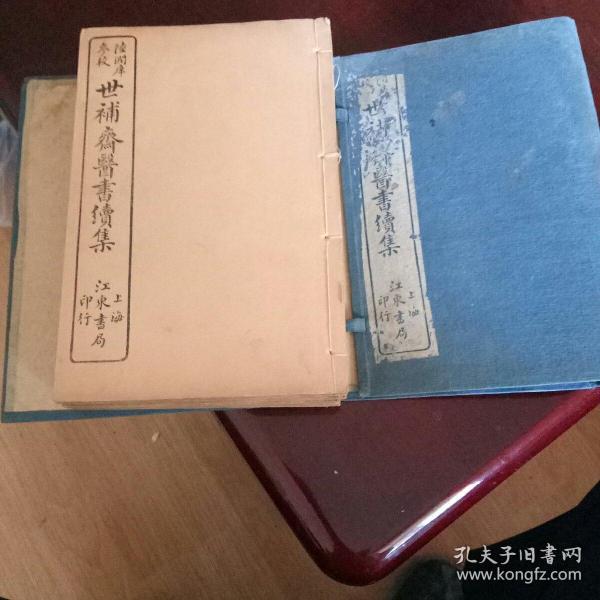 陸潤庠
參校
世補齋醫書續集
上海
江東書局
印行
世補齋醫書續集
上海
江東書局
印行
孔夫子旧书网
www.kongfz.com